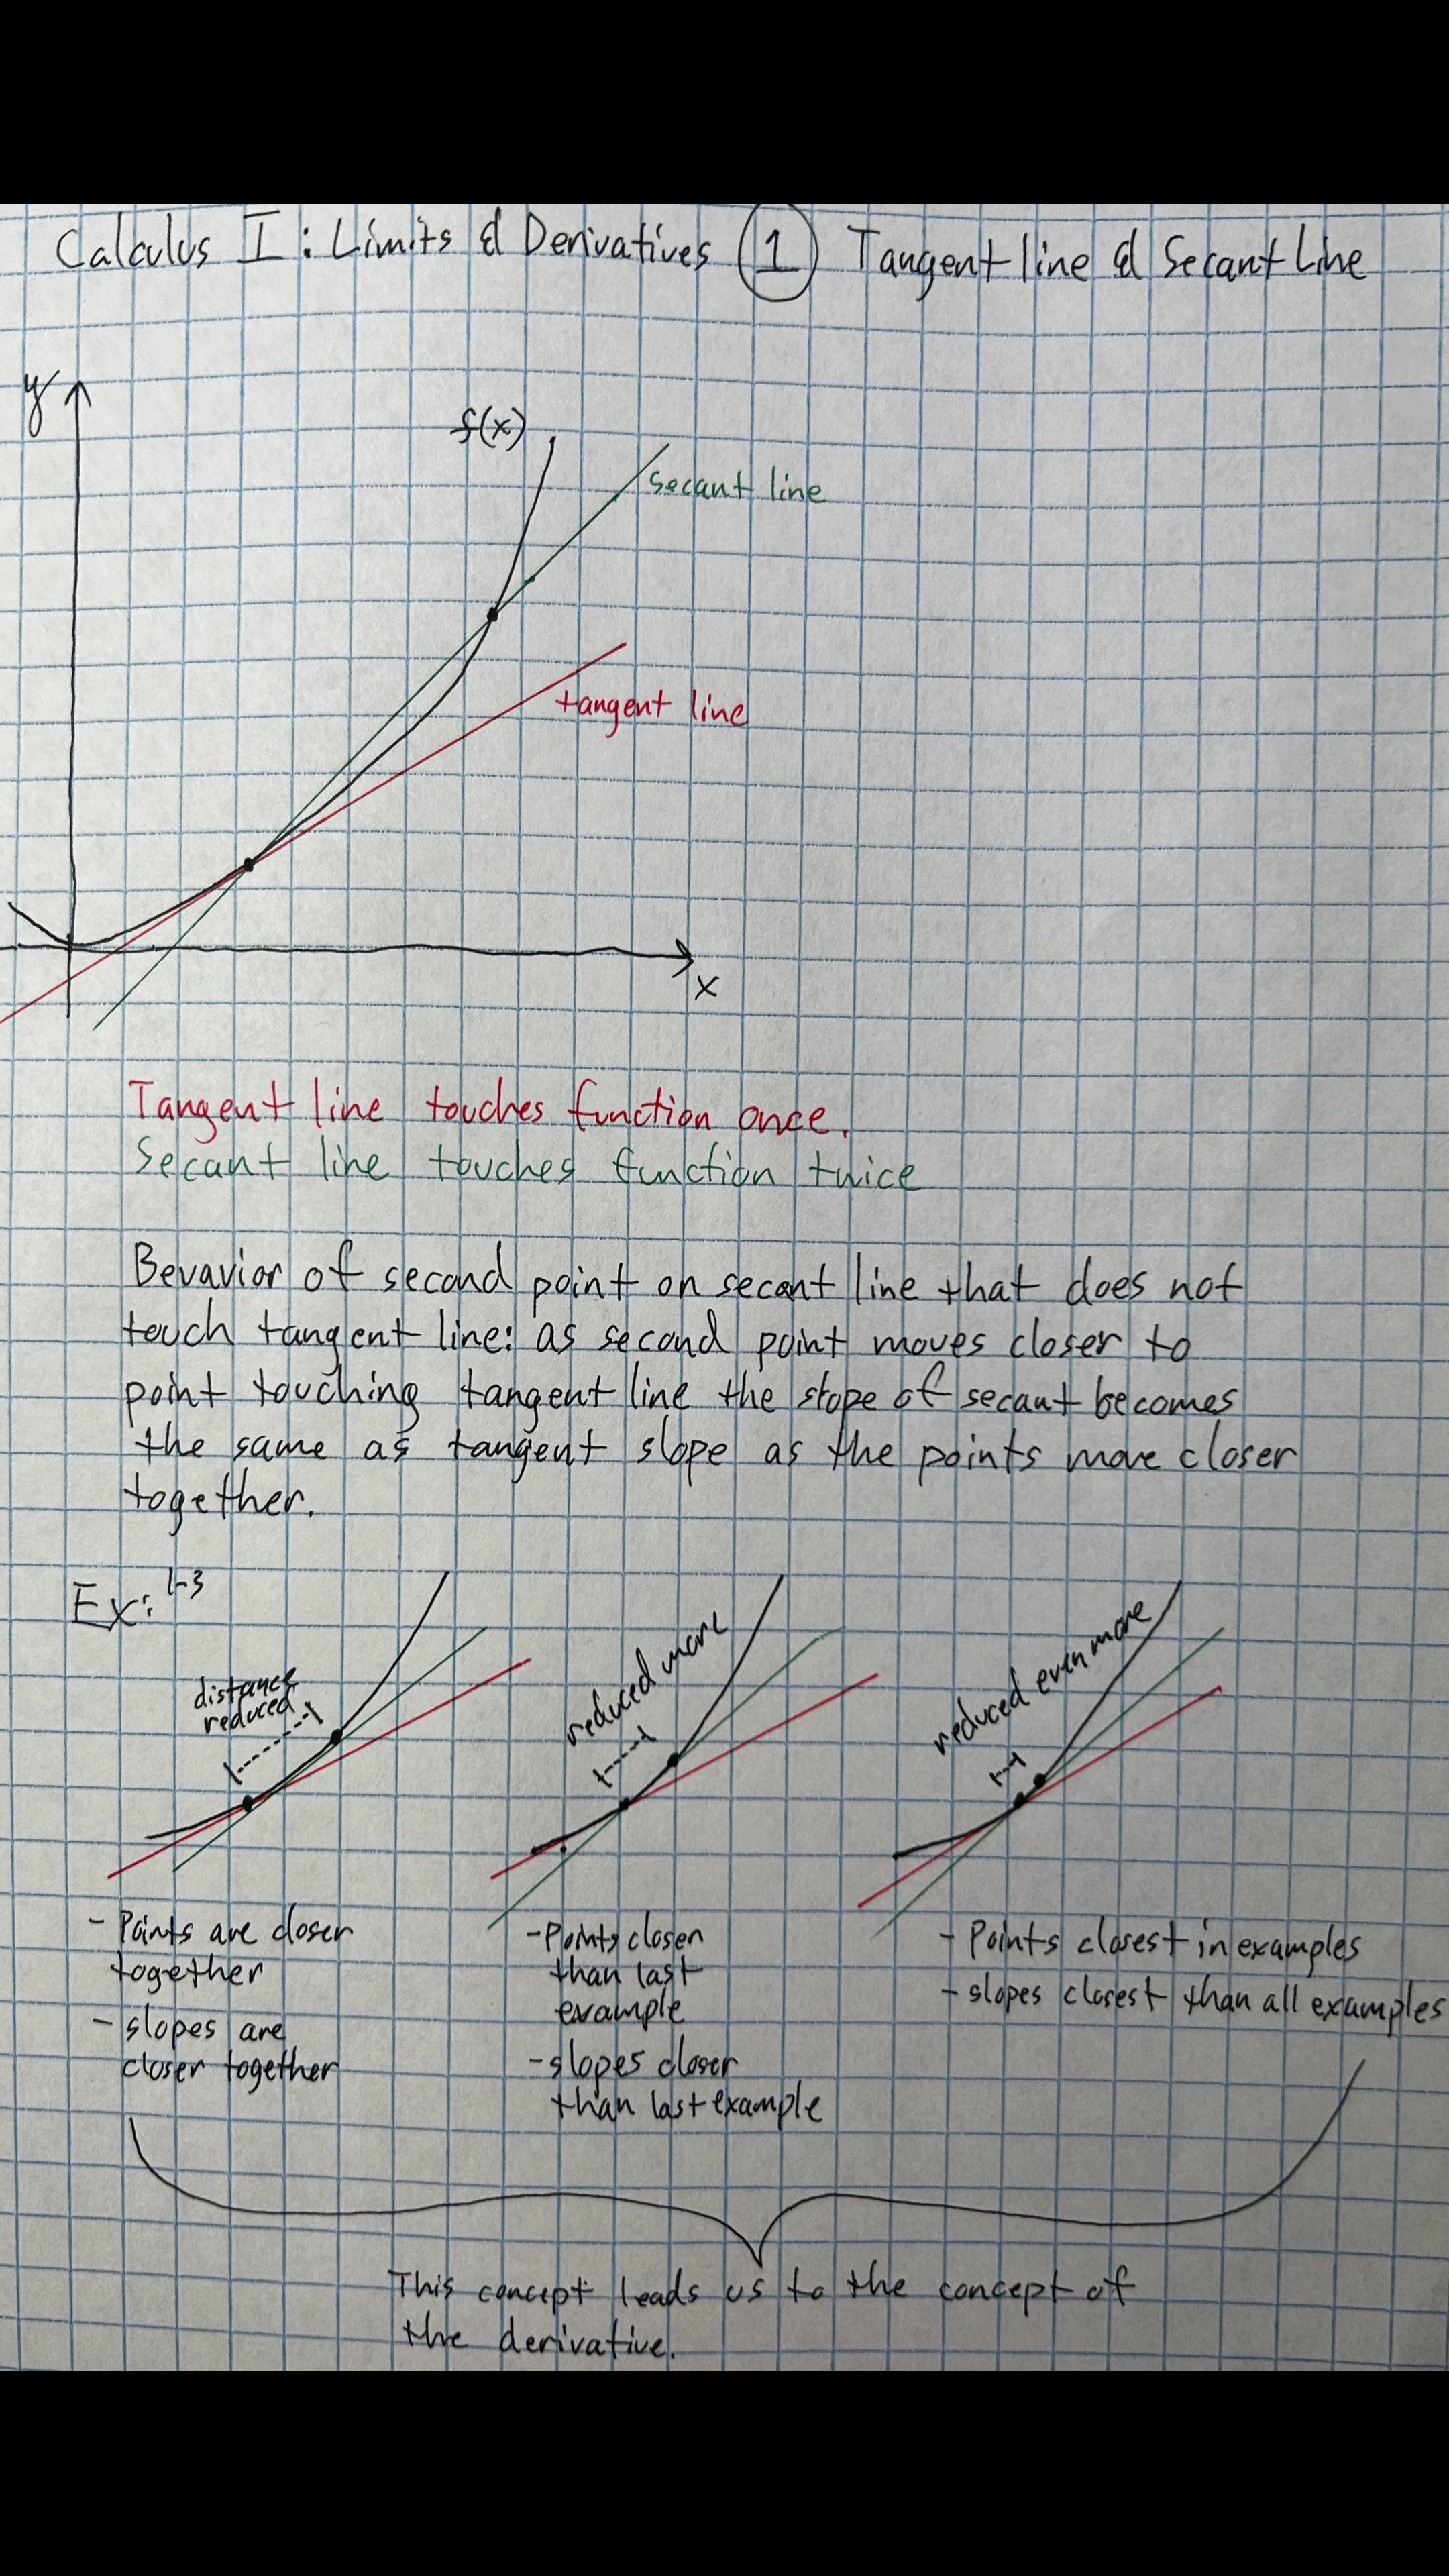 Calculus I: Limits & Derivatives ① Tangent line & Secant Line
y
f(x)
secant line
tangent line
x
Tangent line touches function once.
Secant line touches function twice
Bevavior of second point on secant line that does not
touch tangent line: as second point moves closer to
point touching tangent line the slope of secant becomes
the same as tangent slope as the points move closer
together.
Ex: 1-3
distance
reduced
reduced more
reduced even more
- Points are closer
together
- slopes are
closer together
- Points closer
than last
example
- slopes closer
than last example
- Points closest in examples
- slopes closest than all examples
This concept leads us to the concept of
the derivative.